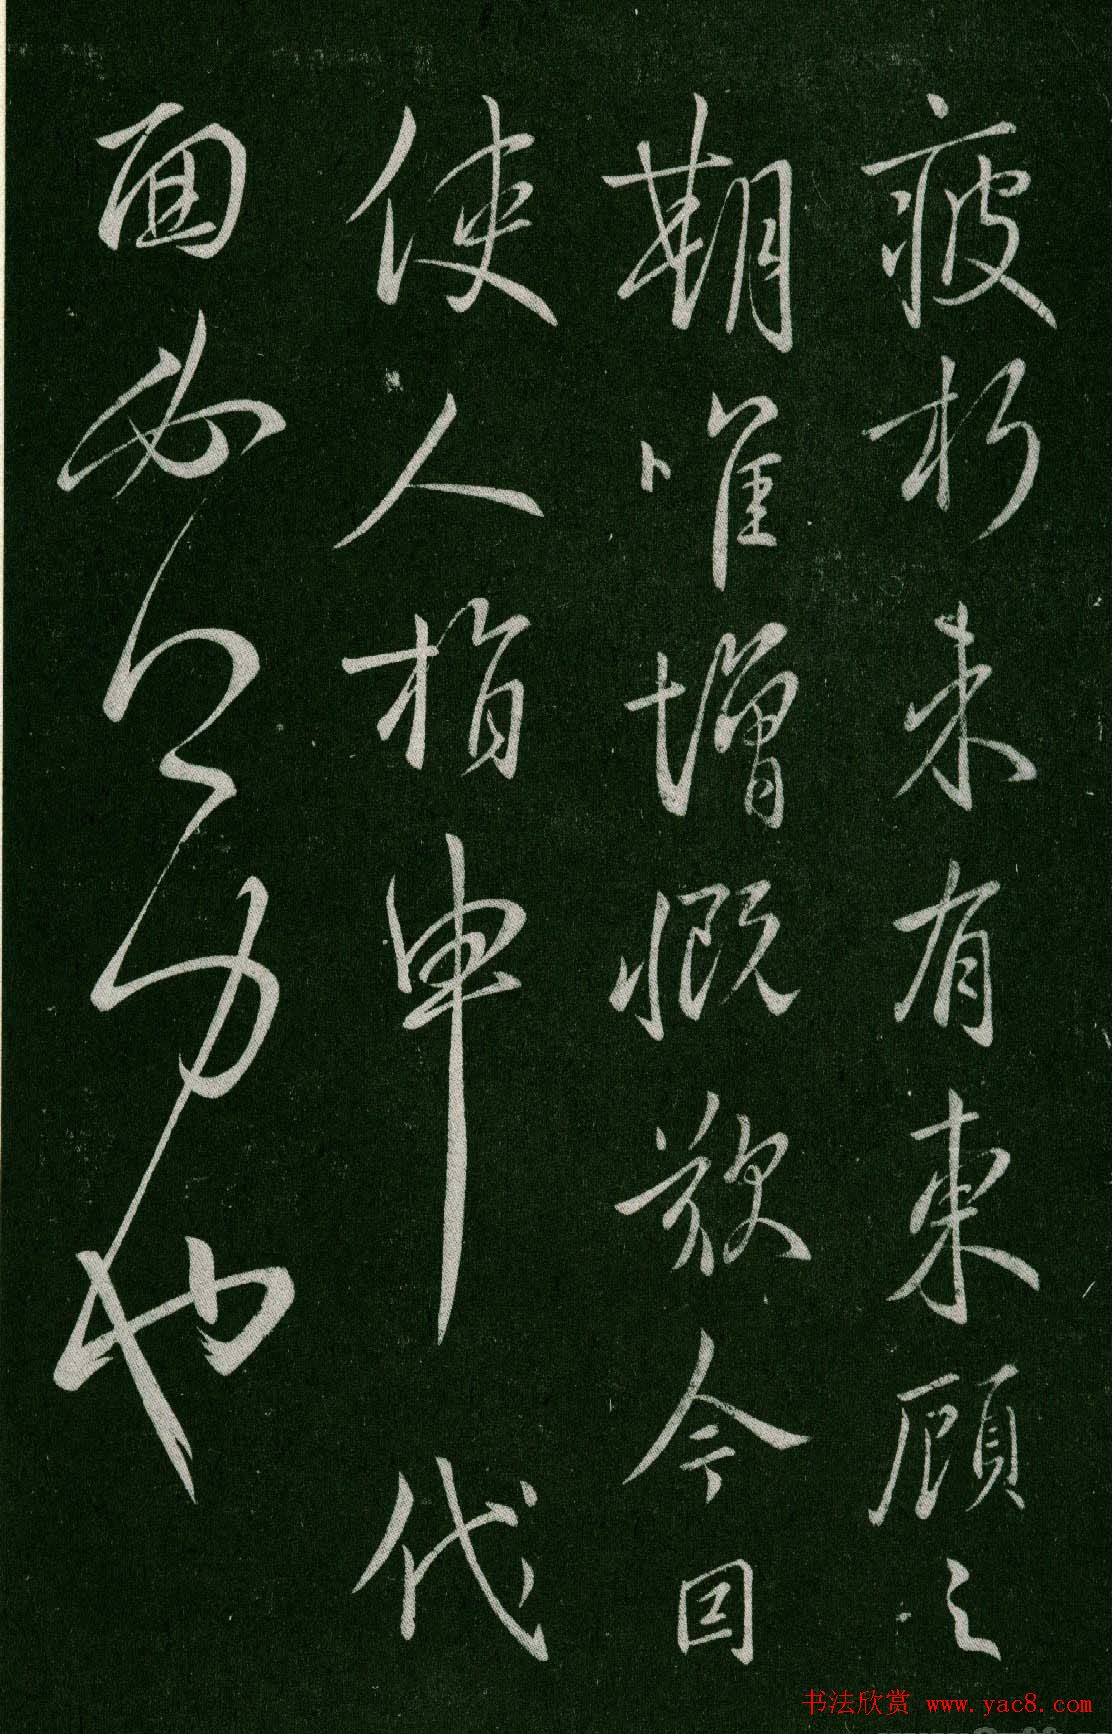 疲朽未有東顧之
期唯增慨歎今因
使人指申代
面也
书法欣赏 www.yac8.com